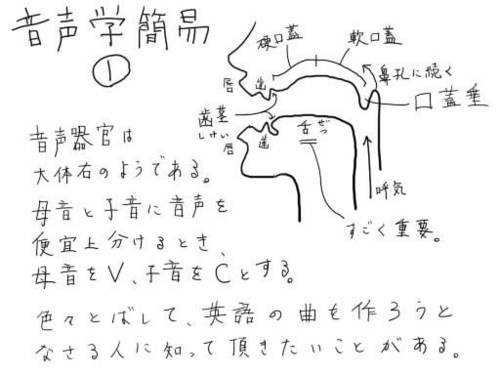 音声学簡易
①
硬口蓋
軟口蓋
鼻孔に続く
唇
歯
口蓋垂
歯茎
しけい
唇
歯
舌
ぜつ
呼気
すごく重要。
音声器官は
大体右のようである。
母音と子音に音声を
便宜上分けるとき、
母音をV、子音をCとする。
色々とばして、英語の曲を作ろうと
なさる人に知って頂きたいことがある。